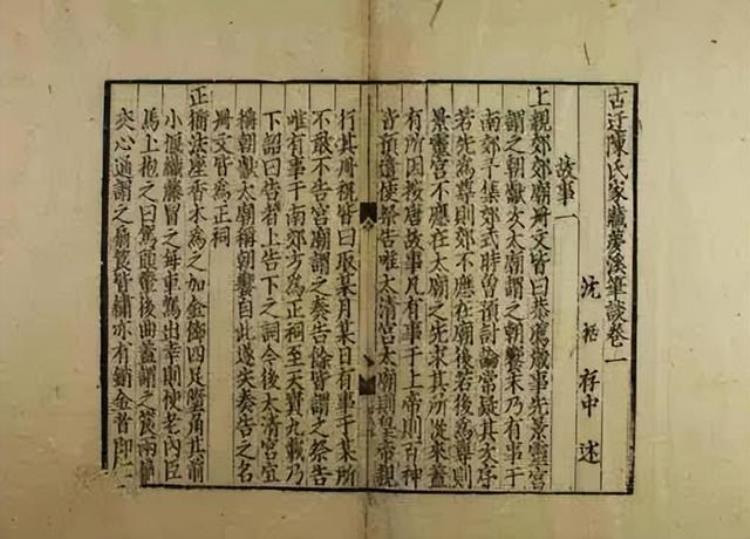 古迂陳氏家藏夢溪筆談卷一
沈括 存中 述
故事一
上親郊郊廟冊文皆曰恭薦歲事先景靈宮
謂之朝獻次太廟謂之朝饗末乃有事于
南郊予集郊式時曾預討論常疑其次序
若先為尊則郊不應在廟後若後為尊則
景靈宮不應在太廟之先求其所從來蓋
有所因按唐故事凡有事于上帝則百神
皆預遣使祭告唯太清宮太廟則皇帝親
行其冊祝皆曰取某月某日有事于某所
不敢不告宮廟謂之奏告餘皆謂之祭告
唯有事于南郊方為正祠至天寶九載乃
下詔曰告者上告下之詞今後太清宮宜
稱朝獻太廟稱朝饗自此遂失奏告之名
冊文皆為正祠
正衙法座香木為之加金飾四足墮角其前
小偃織藤冒之每車駕出幸則使老內臣
馬上抱之曰駕頭輦後曲蓋謂之筤兩扇
夾心通謂之扇筤皆繡亦有銷金者即